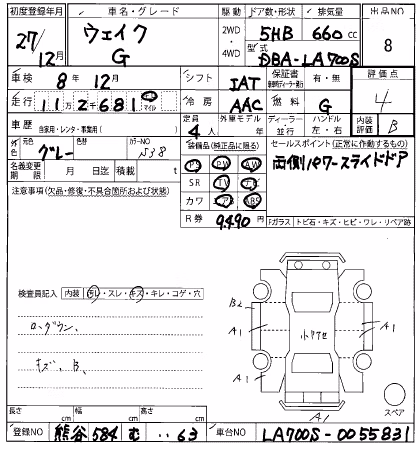 初度登録年月 車名・グレード 駆動 ドア数・形状 排気量 出品NO
27/12月 ウェイク G 2WD・4WD 5HB 660cc 8
型式 DBA-LA700S
車検 8年12月 シフト IAT 保証書 有・無 評価点
走行 11万2千681 キロ マイル 冷房 AAC 燃料 G 4
車歴 自家用・レンタ・事業用( ) 定員 4人 外車モデル 年 ディーラー・並行 ハンドル 左・右 内装評価 B
外色 元色 グレー 色替 カラーNO N38 装備品(純正品に限る) セールスポイント(正常に作動するもの)
両側パワースライドドア
名義変更期限 月 日迄 積載 t PS PW AW
注意事項(欠品・修復・不具合箇所および状態) SR TV ナビ
カワ エアB ABS
R券 9490円 Fガラス トビ石・キズ・ヒビ・ワレ・リペア跡
検査員記入 内装 汚レ・スレ・キズ・キレ・コゲ・穴
キズ、B、
B2
A1
A1
A1
A1
スペア
長さ cm 幅 cm 高さ cm
登録NO 熊谷 584 む ・・63 車台NO LA700S-0055831